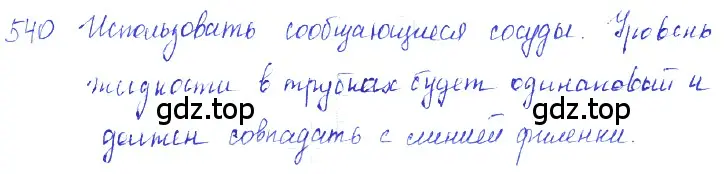 540 Использовать сообщающиеся сосуды. Уровень
жидкости в трубках будет одинаковый и
gdz.top gdz.top
должен совпадать с линией филенки.
gdz.top gdz.top